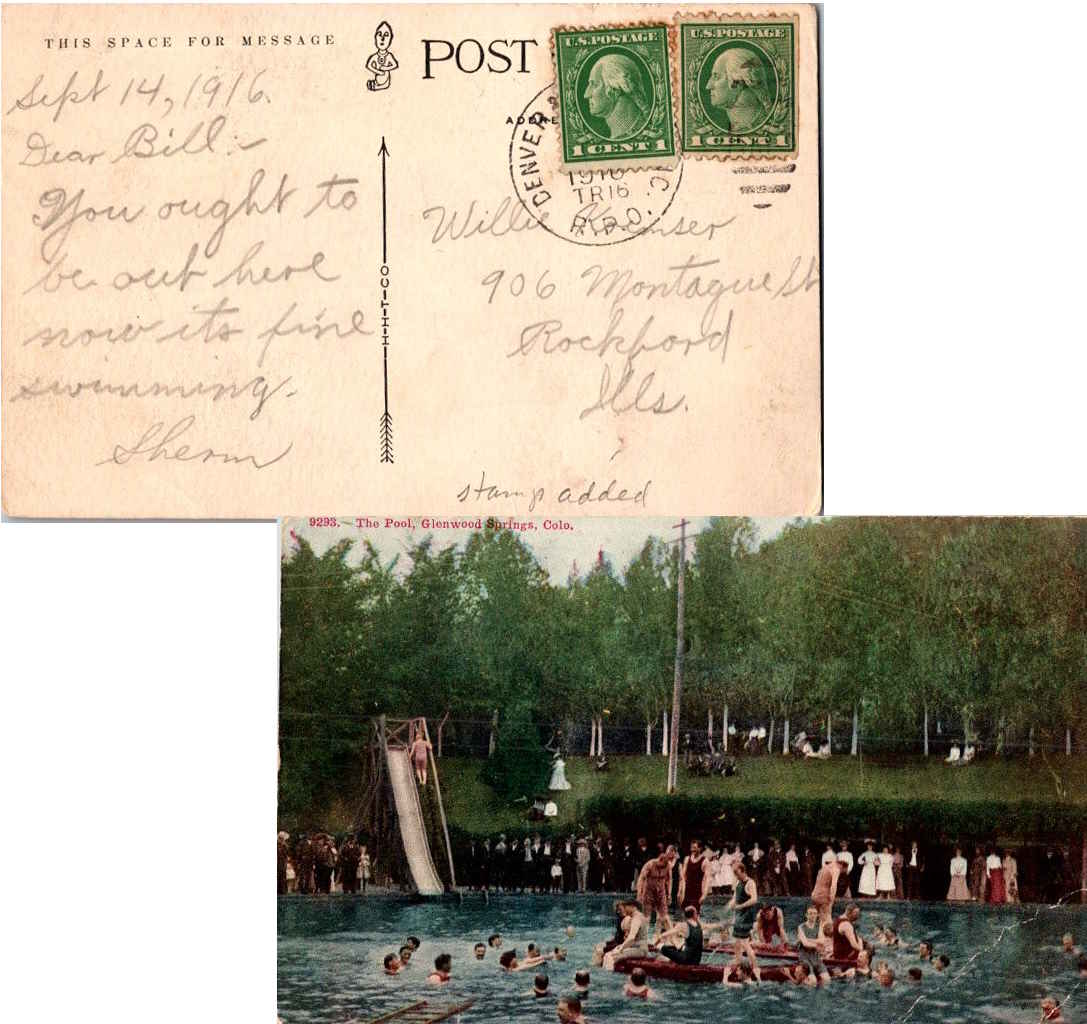 THIS SPACE FOR MESSAGE
POST
ADDRE
U.S. POSTAGE
1 CENT 1
U.S. POSTAGE
1 CENT 1
DENVER
1916
TR16
R.P.O.
Sept 14, 1916.
Dear Bill:-
You ought to
be out here
now its fine
swimming.
Sherm
H-H-T-CO
Willie
906 Montague St
Rockford
Ills.
stamp added
9293. - The Pool, Glenwood Springs, Colo.